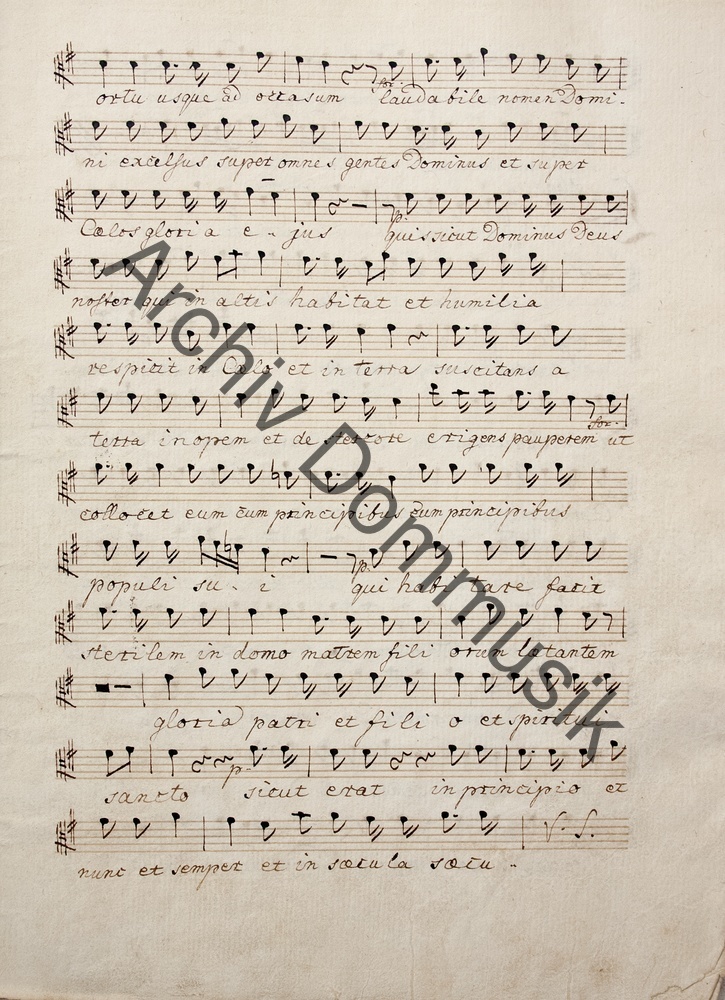 for.
ortu usque ad occasum laudabile nomen Domi-
ni excelsus super omnes gentes Dominus et super
p.
Cœlos gloria e-jus quis sicut Dominus Deus
noster qui in altis habitat et humilia
respicit in Cœlo et in terra suscitans a
for.
terra inopem et de stercore erigens pauperem ut
collocet eum cum principibus cum principibus
p.
populi su-i qui habitare facit
sterilem in domo matrem fili orum lætantem
gloria patri et fili o et spiritui
p.
sancto sicut erat in principio et
V. S.
nunc et semper et in sæcula sæcu-
Archiv Dommusik